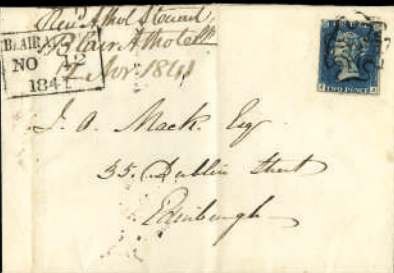 Athol Steward
Blair Athole
Nov. 1841
BLAIR A
NO 12
1841
TWO PENCE
J. A. Mack. Esq
35. Dublin Street
Edinburgh